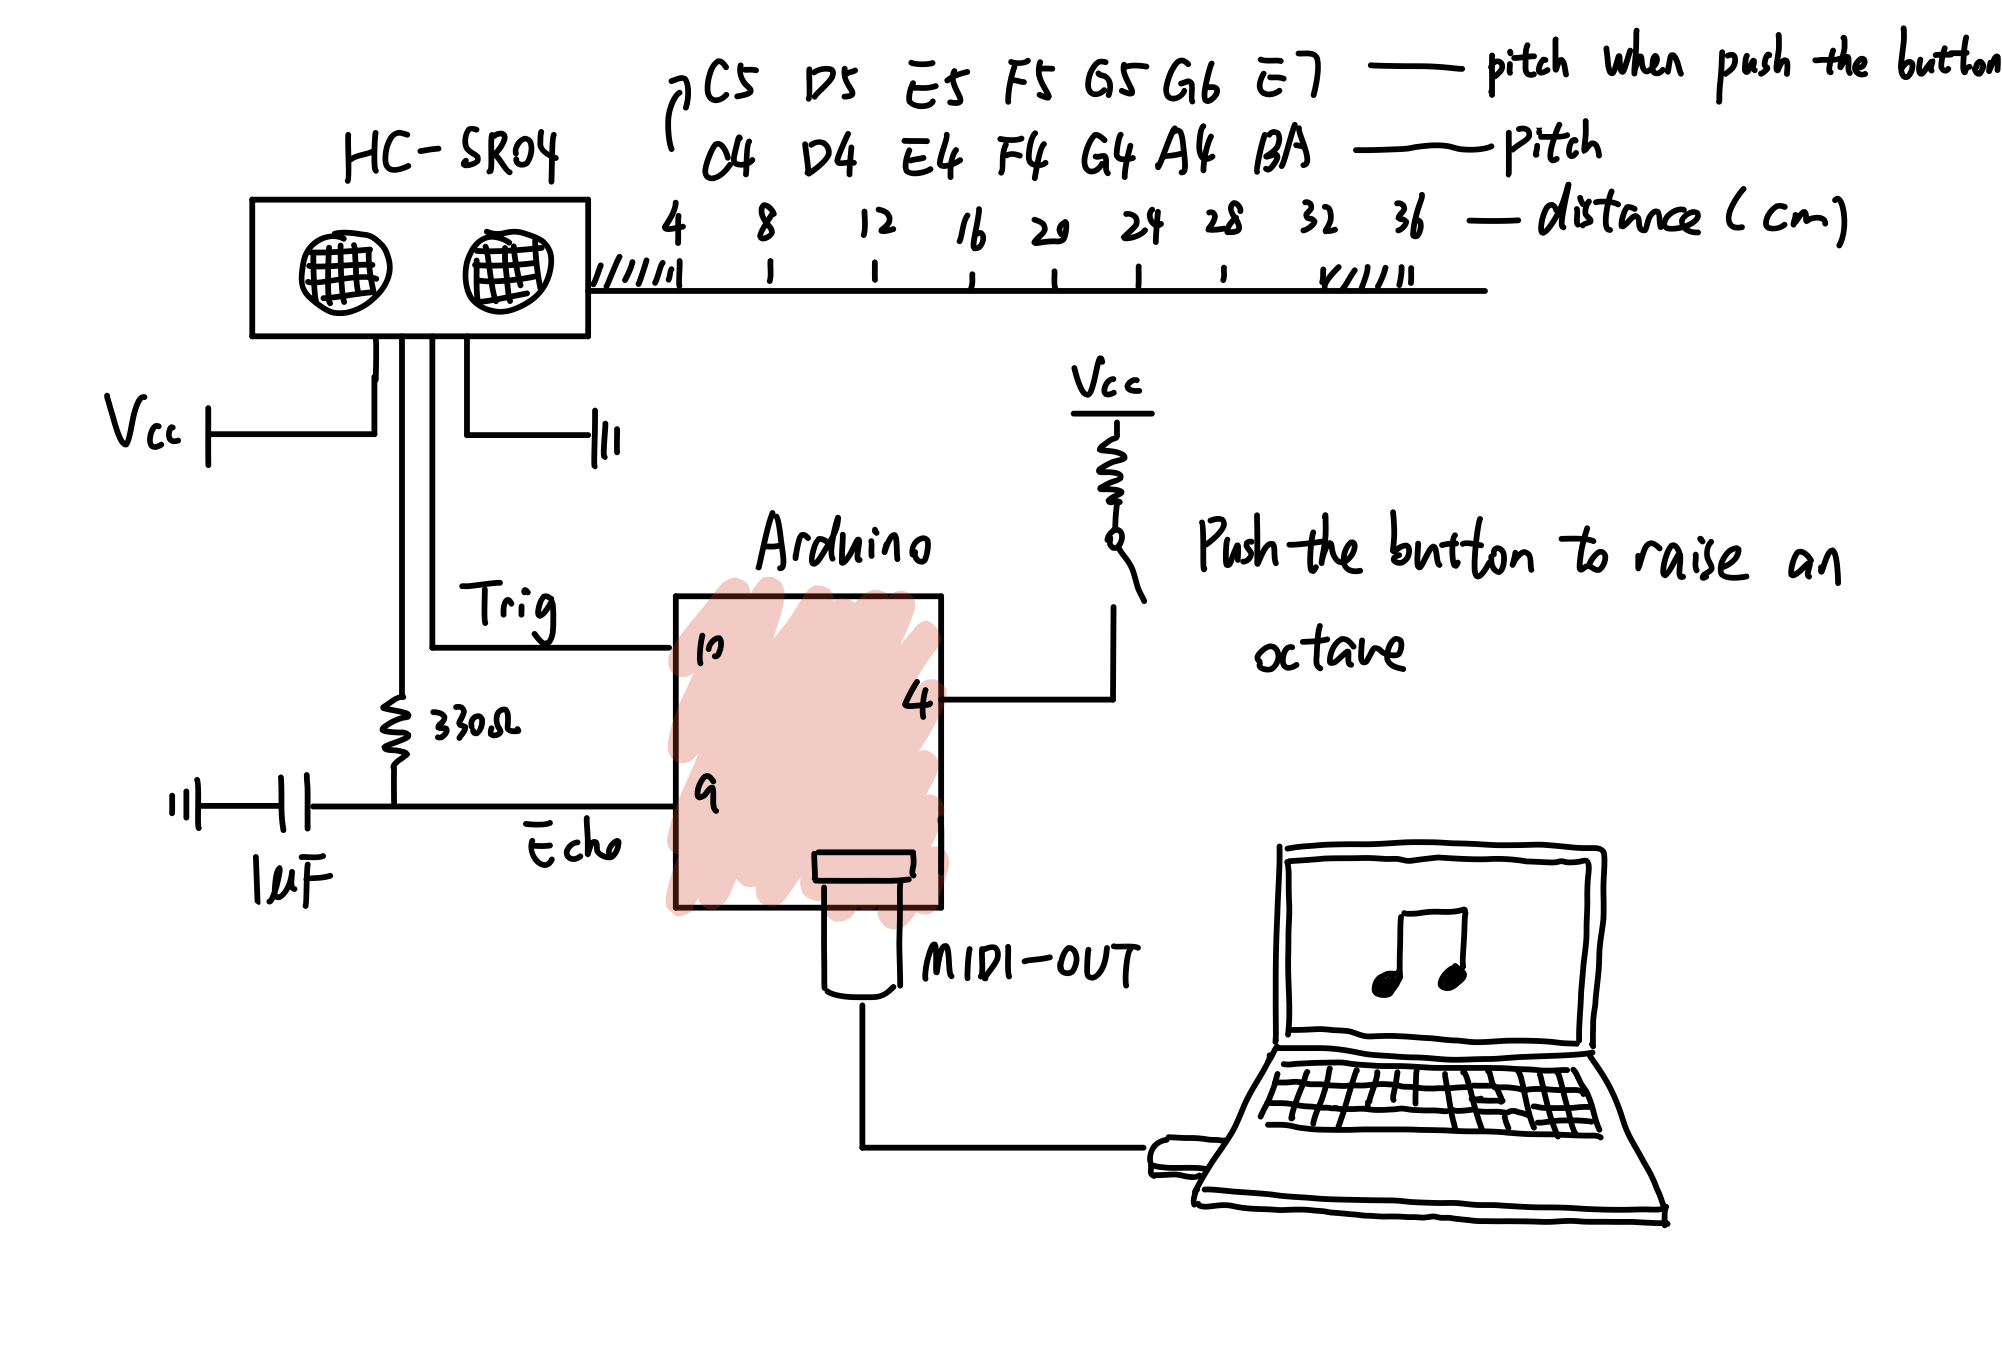 C5 D5 E5 F5 G5 G6 E7 — pitch when push the button
C4 D4 E4 F4 G4 A4 BA — pitch
HC-SR04
4 8 12 16 20 24 28 32 36 — distance (cm)
Vcc
Vcc
Arduino
Push the button to raise an
octave
Trig
10
4
330Ω
9
Echo
1μF
MIDI-OUT